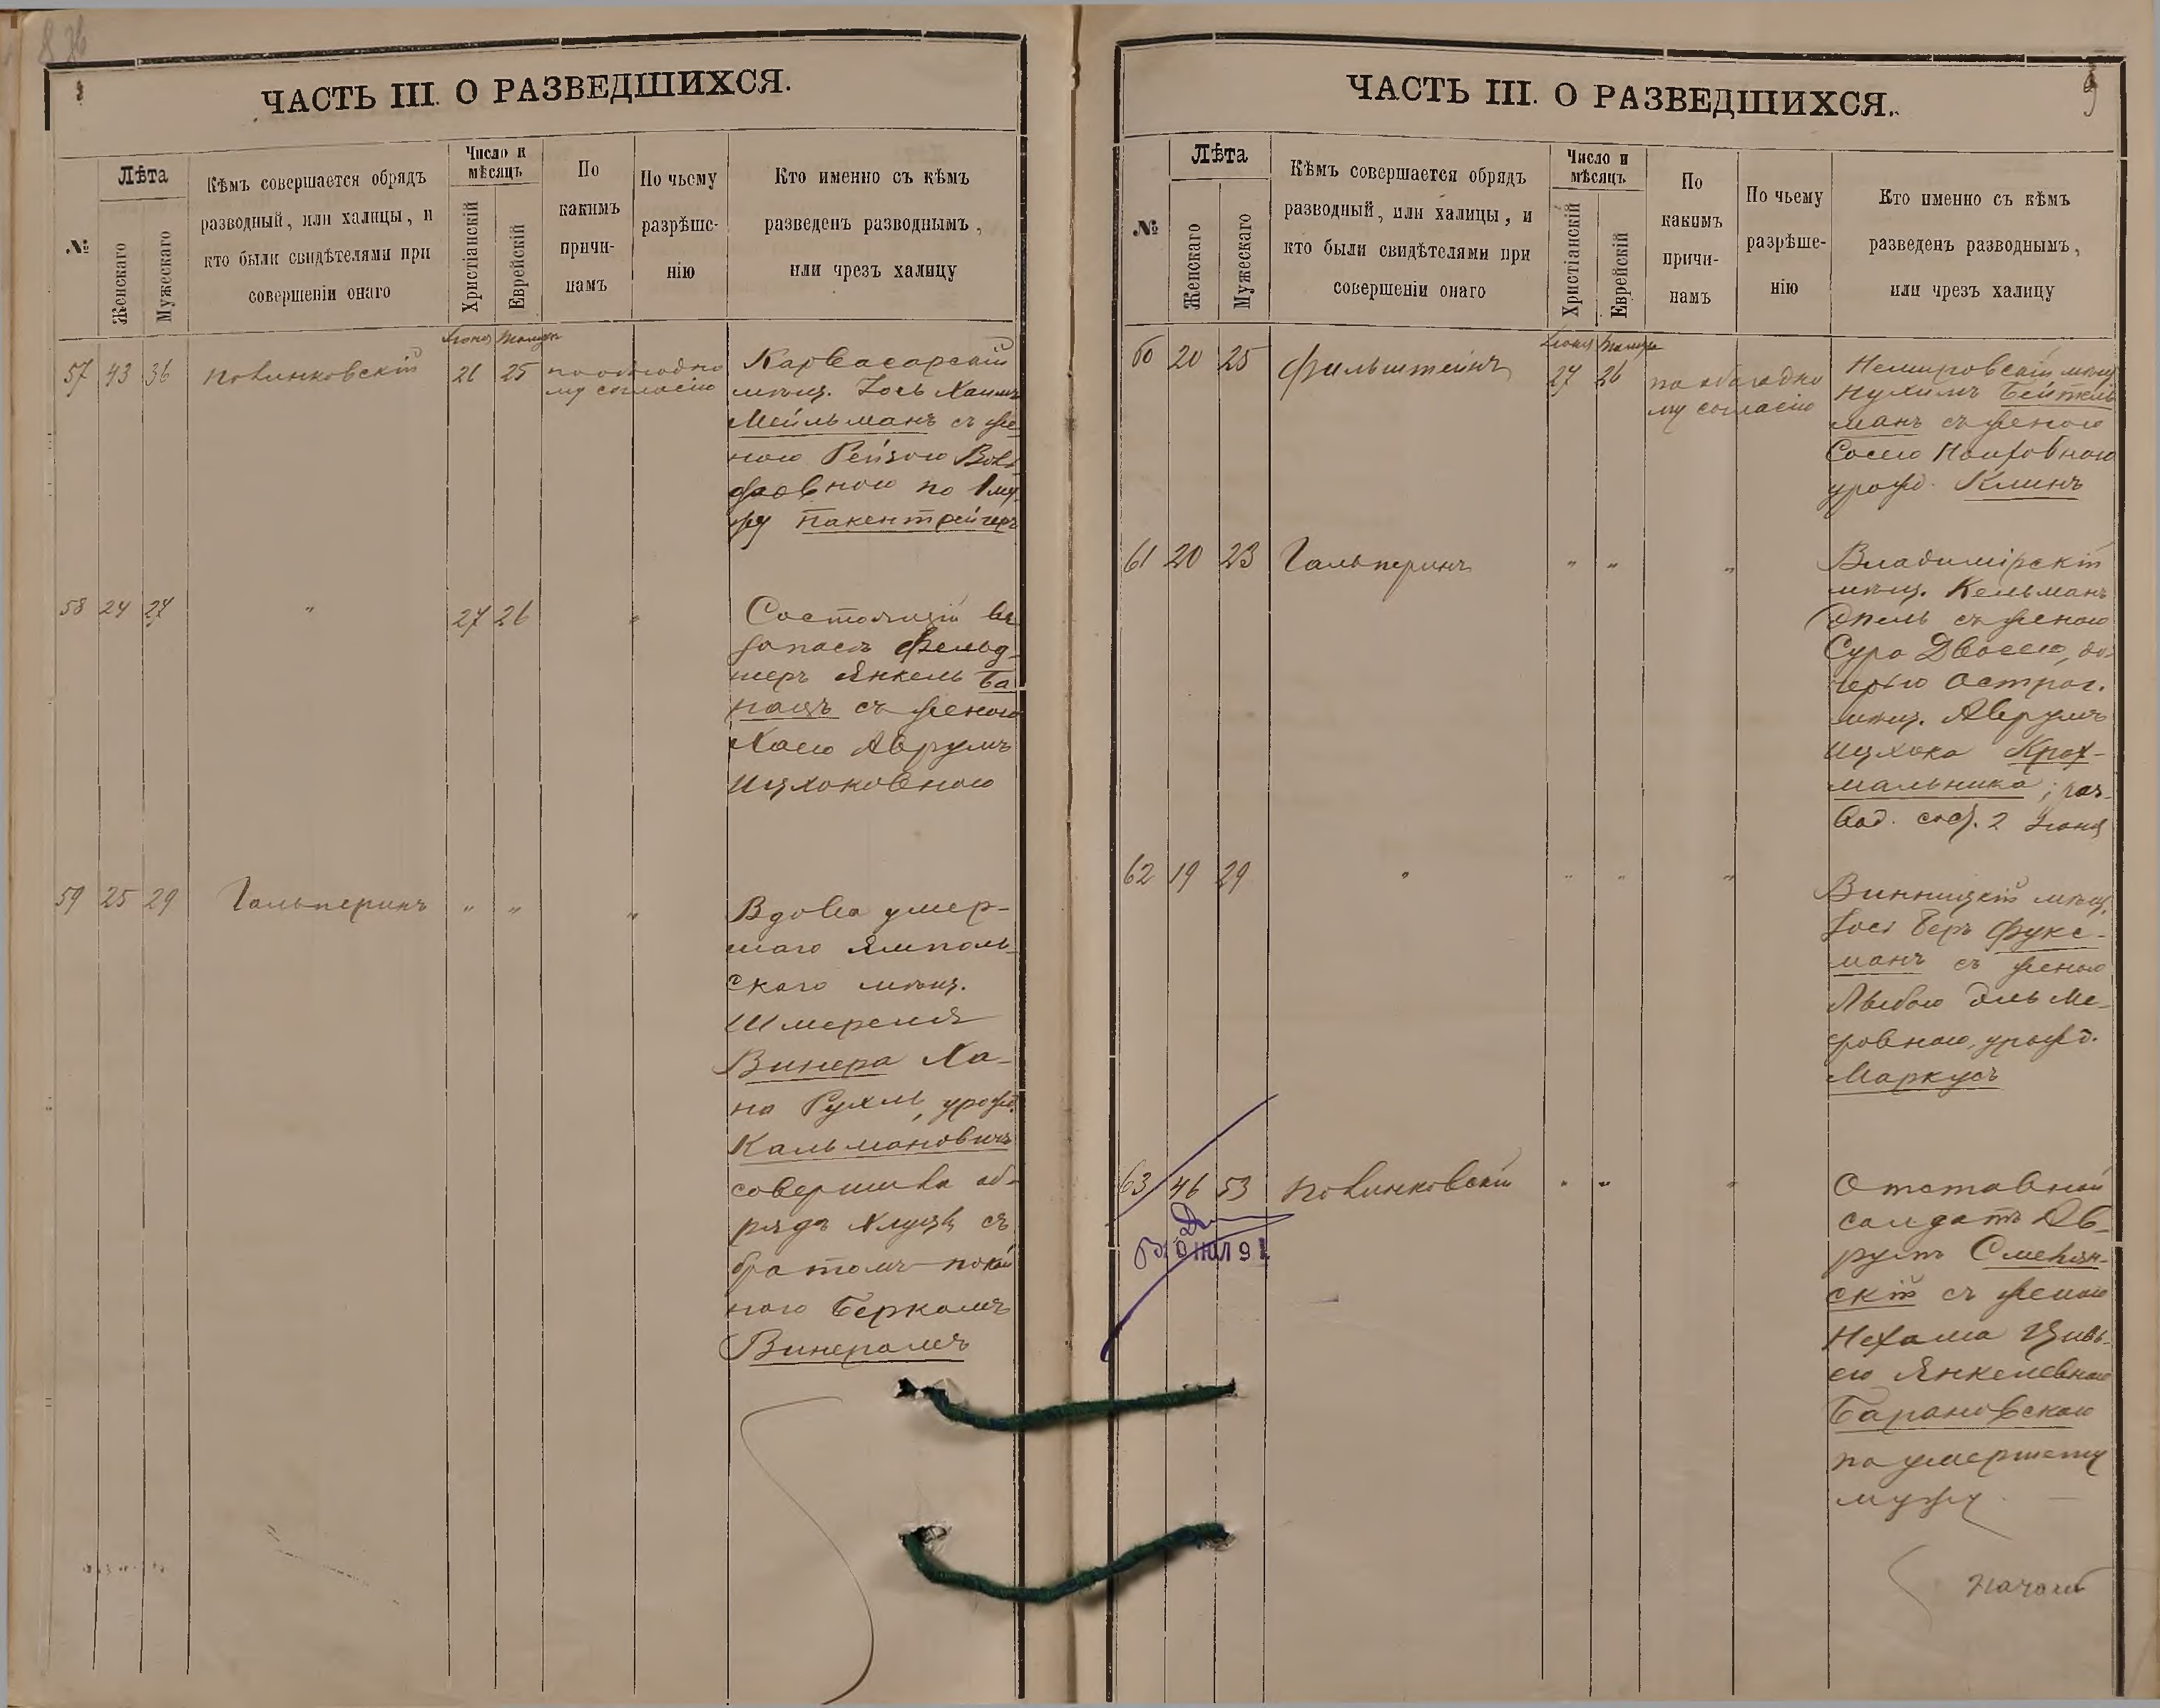 ЧАСТЬ III. О РАЗВЕДШИХСЯ.
№
Лѣта
Женскаго
Мужескаго
Кѣмъ совершается обрядъ
разводный, или халицы, и
кто были свидѣтелями при
совершеніи онаго
Число и
мѣсяцъ
Христіанскій
Еврейскій
По
какимъ
причи-
намъ
По чьему
разрѣше-
нію
Кто именно съ кѣмъ
разведенъ разводнымъ,
или чрезъ халицу
57 43 36
26 25
по обоюдно
му согласію
Карвасарскій
мѣщ. Іось Хаимъ
Мейльманъ съ же
ною Рейзою Воль
фовною по 1 му
жу Пакентрейгеръ
58 24 27 " 27 26 "
Состоящій въ
запасѣ фельд-
шеръ Янкель Ба
нащъ съ женою
Хаею Аврумъ
Ицхоковною
59 25 29 Гальперинъ " " "
Вдова умер-
шаго Ямполь-
скаго мѣщ.
Шмереля
Винера Ха-
на Рухль, урожд.
Кальмановичъ
совершила об-
рядъ Хлицы съ
братомъ покой
наго Беркомъ
Винеромъ
ЧАСТЬ III. О РАЗВЕДШИХСЯ.
9
№
Лѣта
Женскаго
Мужескаго
Кѣмъ совершается обрядъ
разводный, или халицы, и
кто были свидѣтелями при
совершеніи онаго
Число и
мѣсяцъ
Христіанскій
Еврейскій
По
какимъ
причи-
намъ
По чьему
разрѣше-
нію
Кто именно съ кѣмъ
разведенъ разводнымъ,
или чрезъ халицу
60 20 25 Фильштейнъ
27 26
по обоюдно
му согласію
Немировскій мѣщ.
Нухимъ Бейтель
манъ съ женою
Сосею
урожд. Клинъ
61 20 23 Гальперинъ " " "
Владимірскій
мѣщ. Кельманъ
Эпель съ женою
Сура Двосею, до-
черью Острог.
мѣщ. Аврумъ
Ицхока Крох-
мальника; раз-
вод. 2 Іюня
62 19 29 " " " "
Винницкій мѣщ.
Іось Беръ Фукс-
манъ съ женою
Эль Ме-
еровною, урожд.
Маркусъ
63 46 53 " " "
Отставной
солдатъ Ав-
румъ
скій съ женою
Нехама Цивь-
ею Янкелевною
Барановскою
по умершему
мужу